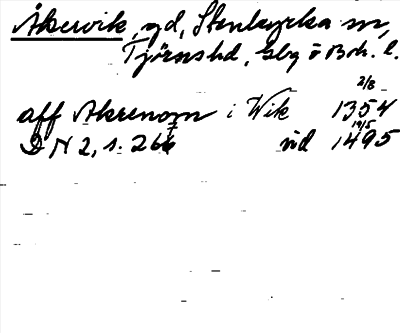 Åkervik, gd, Stenkyrka sn,
Tjörns hd, Gbg o Boh. l.
2/8
aff Akrenom i Wik 1354
19/5
DN 2, s. 266 vid 1495